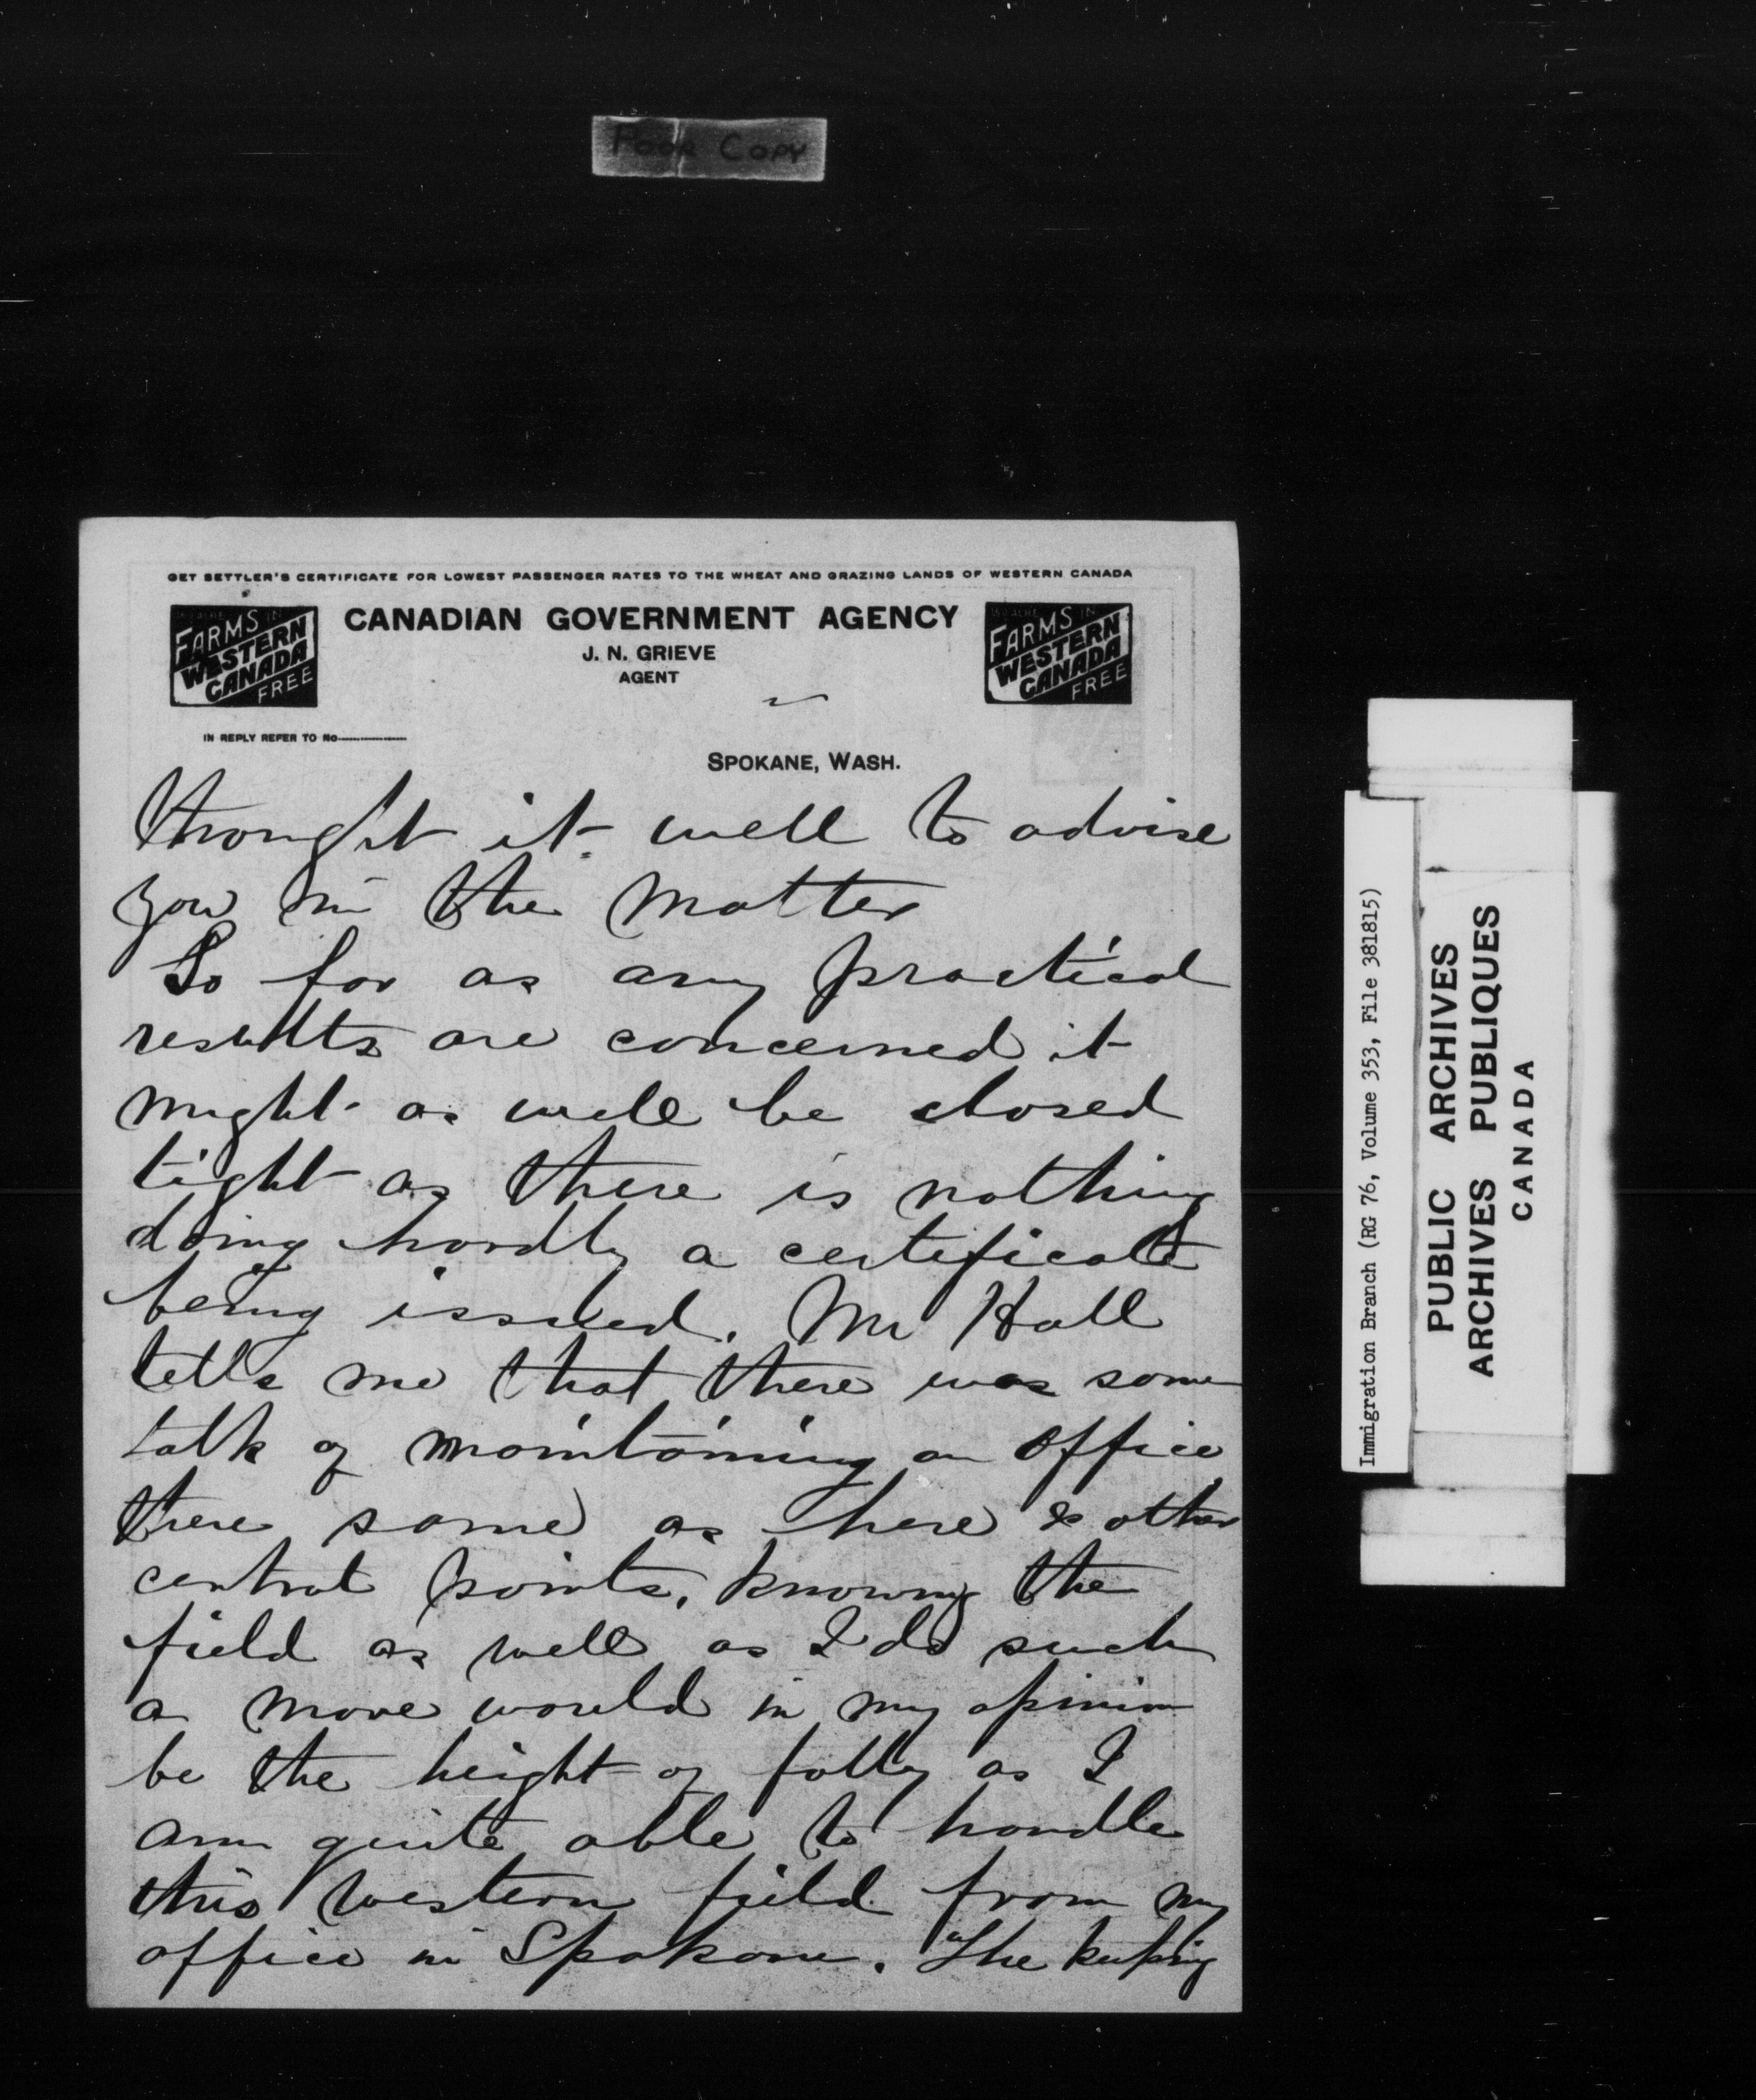 Poor Copy
GET SETTLER'S CERTIFICATE FOR LOWEST PASSENGER RATES TO THE WHEAT AND GRAZING LANDS OF WESTERN CANADA
FARMS IN
WESTERN
CANADA
FREE
CANADIAN GOVERNMENT AGENCY
J. N. GRIEVE
AGENT
FARMS IN
WESTERN
CANADA
FREE
IN REPLY REFER TO No
SPOKANE, WASH.
thought it well to advise
you in the matter
So far as any practical
results are concerned it
might as well be closed
tight as there is nothing
doing hardly a certificate
being issued. Mr Hall
tells me that there was some
talk of maintaining an office
there same as here & other
central points, knowing the
field as well as I do such
a move would in my opinion
be the height of folly as I
am quite able to handle
this western field from my
office in Spokane. The keeping
Immigration Branch (RG 76, Volume 353, File 381815)
PUBLIC ARCHIVES
ARCHIVES PUBLIQUES
CANADA